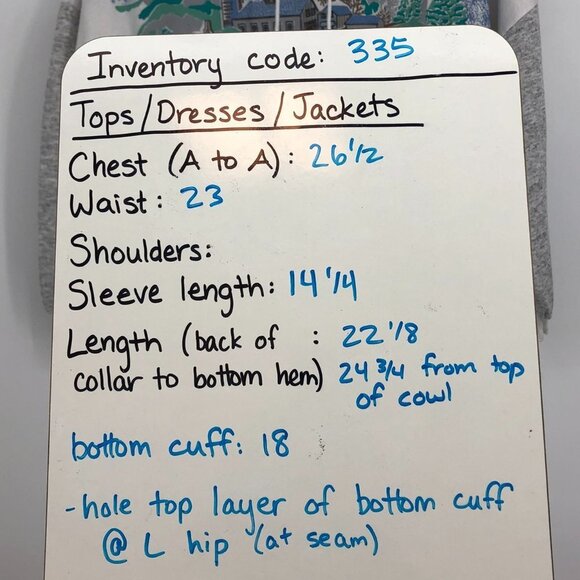 Inventory code: 335
Tops/Dresses/Jackets
Chest (A to A): 26 1/2
Waist: 23
Shoulders:
Sleeve length: 14 1/4
Length (back of : 22 1/8
collar to bottom hem) 24 3/4 from top
of cowl
bottom cuff: 18
-hole top layer of bottom cuff
@ L hip (at seam)